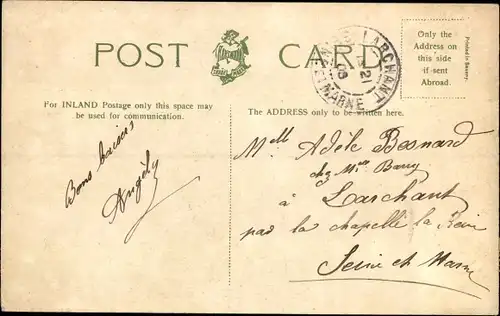 POST CARD
Only the
Address on
this side
if sent
Abroad.
Printed in Saxony.
LARCHANT
21
08
ET MARNE
For INLAND Postage only this space may
be used for communication.
The ADDRESS only to be written here.
Bons baisers
Angèle
Melle Adèle Besnard
chez Mme Barry
à Larchant
par la chapelle la Reine
Seine et Marne